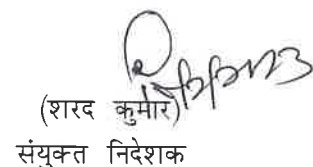 (शरद कुमार)
संयुक्त निदेशक